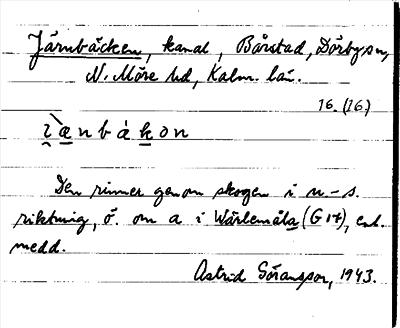 Järnbäcken, kanal, Bårstad, Dörby sn,
N. Möre hd, Kalm. län.
16. (16.)
i̯æ̀nbákən
Den rinner genom skogen i n.-s.
riktning, ö. om a i Wärlemåla (G 17), enl.
medd.
Astrid Göransson, 1943.